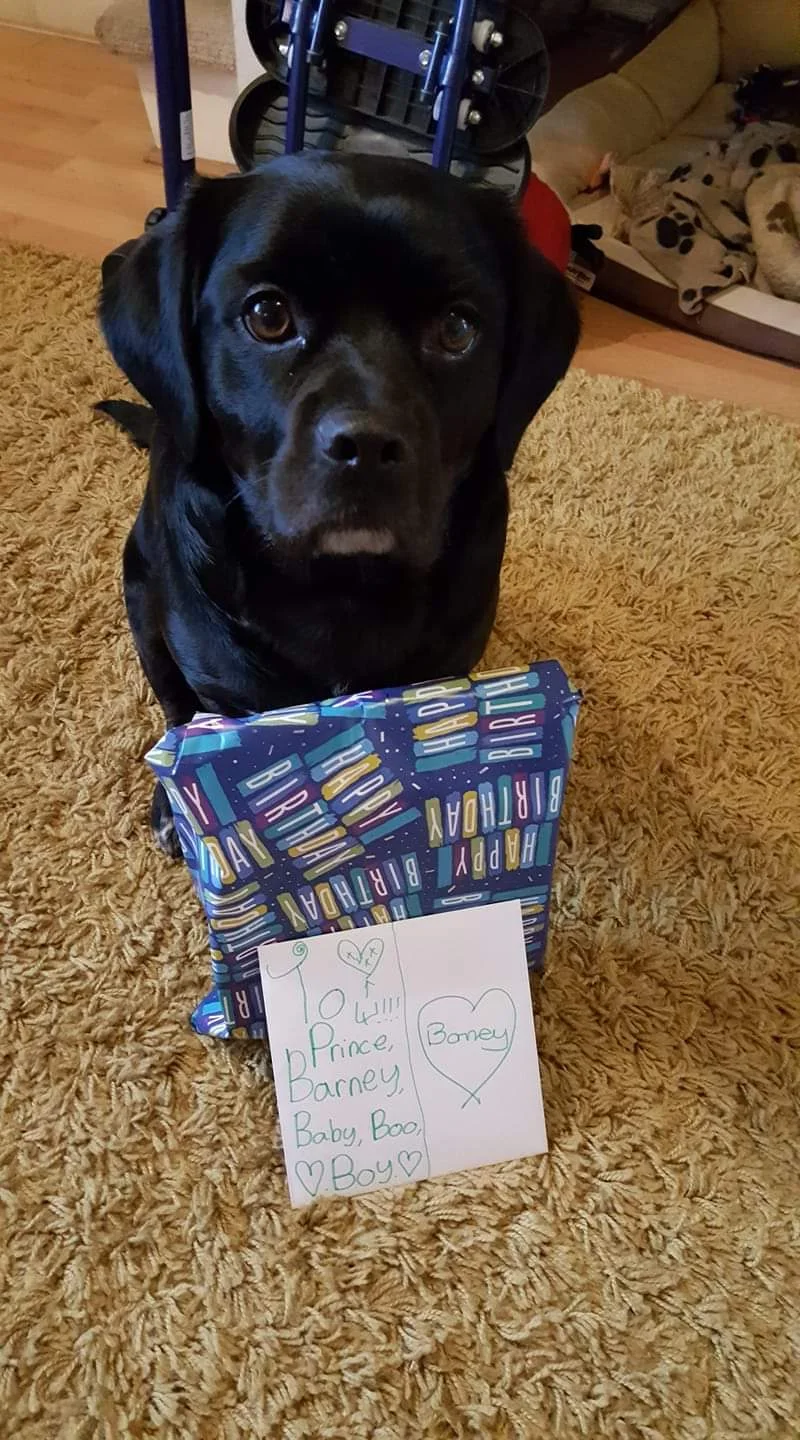 HAPPY BIRTHDAY
HAPPY BIRTHDAY
HAPPY BIRTHDAY
HAPPY BIRTHDAY
To
4!!!!
Prince,
Barney,
Baby, Boo,
♡.Boy.♡
Barney